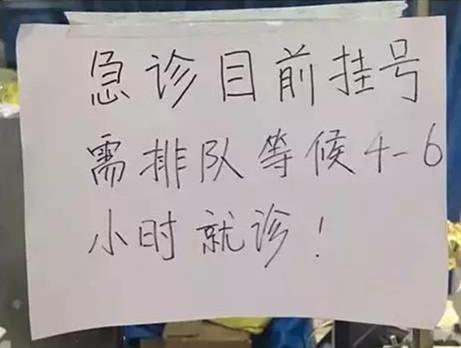 急诊目前挂号
需排队等候4-6
小时就诊!